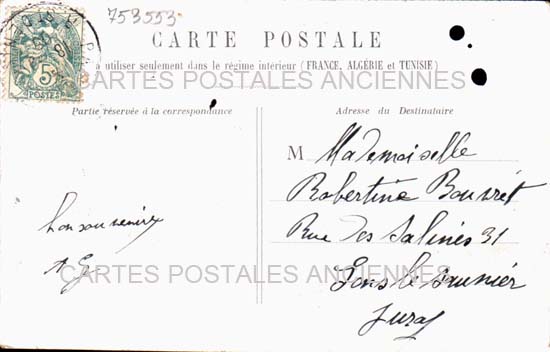 753553
CARTE POSTALE
à utiliser seulement dans le régime intérieur (FRANCE, ALGÉRIE et TUNISIE)
CARTES POSTALES ANCIENNES
Partie réservée à la correspondance
Adresse du Destinataire
5c
POSTES
M Mademoiselle
Robertine Bouvret
Rue des Salines 31
Lons le Saunier
Jura
bon souvenir
CARTES POSTALES ANCIENNES